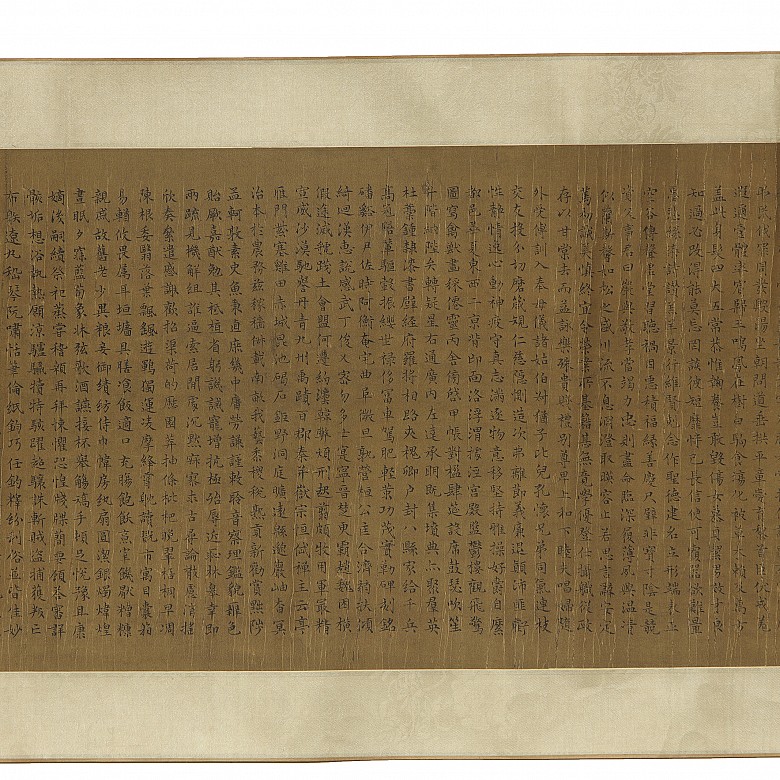 弔民伐罪周發殷湯坐朝問道垂拱平章愛育黎首臣伏戎羌
遐邇壹體率賓歸王鳴鳳在樹白駒食場化被草木賴及萬方
蓋此身髮四大五常恭惟鞠養豈敢毀傷女慕貞潔男效才良
知過必改得能莫忘罔談彼短靡恃己長信使可覆器欲難量
墨悲絲染詩讚羔羊景行維賢剋念作聖德建名立形端表正
空谷傳聲虛堂習聽禍因惡積福緣善慶尺璧非寶寸陰是競
資父事君曰嚴與敬孝當竭力忠則盡命臨深履薄夙興溫凊
似蘭斯馨如松之盛川流不息淵澄取映容止若思言辭安定
篤初誠美慎終宜令榮業所基籍甚無竟學優登仕攝職從政
存以甘棠去而益詠樂殊貴賤禮別尊卑上和下睦夫唱婦隨
外受傅訓入奉母儀諸姑伯叔猶子比兒孔懷兄弟同氣連枝
交友投分切磨箴規仁慈隱惻造次弗離節義廉退顛沛匪虧
性靜情逸心動神疲守真志滿逐物意移堅持雅操好爵自縻
都邑華夏東西二京背邙面洛浮渭據涇宮殿盤鬱樓觀飛驚
圖寫禽獸畫綵僊靈丙舍傍啓甲帳對楹肆筵設席鼓瑟吹笙
升階納陛弁轉疑星右通廣內左達承明既集墳典亦聚羣英
杜藁鍾隸漆書壁經府羅將相路夾槐卿戶封八縣家給千兵
高冠陪輦驅轂振纓世祿侈富車駕肥輕策功茂實勒碑刻銘
磻谿伊尹佐時阿衡奄宅曲阜微旦孰營桓公匡合濟弱扶傾
綺迴漢惠說感武丁俊乂密勿多士寔寧晉楚更霸趙魏困橫
假途滅虢踐土會盟何遵約法韓弊煩刑起翦頗牧用軍最精
宣威沙漠馳譽丹青九州禹蹟百郡秦并嶽宗恒岱禪主云亭
雁門紫塞雞田赤城昆池碣石鉅野洞庭曠遠綿邈巖岫杳冥
治本於農務茲稼穡俶載南畝我藝黍稷稅熟貢新勸賞黜陟
孟軻敦素史魚秉直庶幾中庸勞謙謹敕聆音察理鑑貌辨色
貽厥嘉猷勉其祗植省躬譏誡寵增抗極殆辱近恥林皋幸即
兩疏見機解組誰逼索居閒處沉默寂寥求古尋論散慮逍遙
欣奏累遣慼謝歡招渠荷的歷園莽抽條枇杷晚翠梧桐早凋
陳根委翳落葉飄颻遊鵾獨運凌摩絳霄耽讀翫市寓目囊箱
易輶攸畏屬耳垣墻具膳飡飯適口充腸飽飫烹宰饑厭糟糠
親戚故舊老少異糧妾御績紡侍巾帷房紈扇圓潔銀燭煒煌
晝眠夕寐藍筍象牀弦歌酒讌接杯舉觴矯手頓足悅豫且康
嫡後嗣續祭祀蒸嘗稽顙再拜悚懼恐惶牋牒簡要顧答審詳
骸垢想浴執熱願涼驢騾犢特駭躍超驤誅斬賊盜捕獲叛亡
布射遼丸嵇琴阮嘯恬筆倫紙鈞巧任釣釋紛利俗並皆佳妙